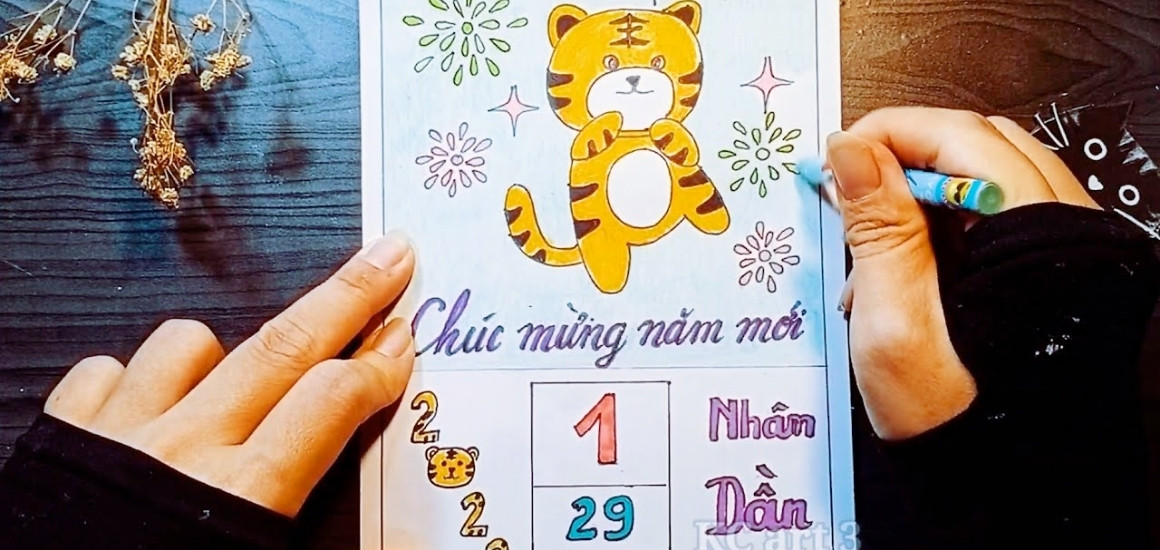 Chúc mừng năm mới
2
1
Nhân
2
29
Dần
KC art 3